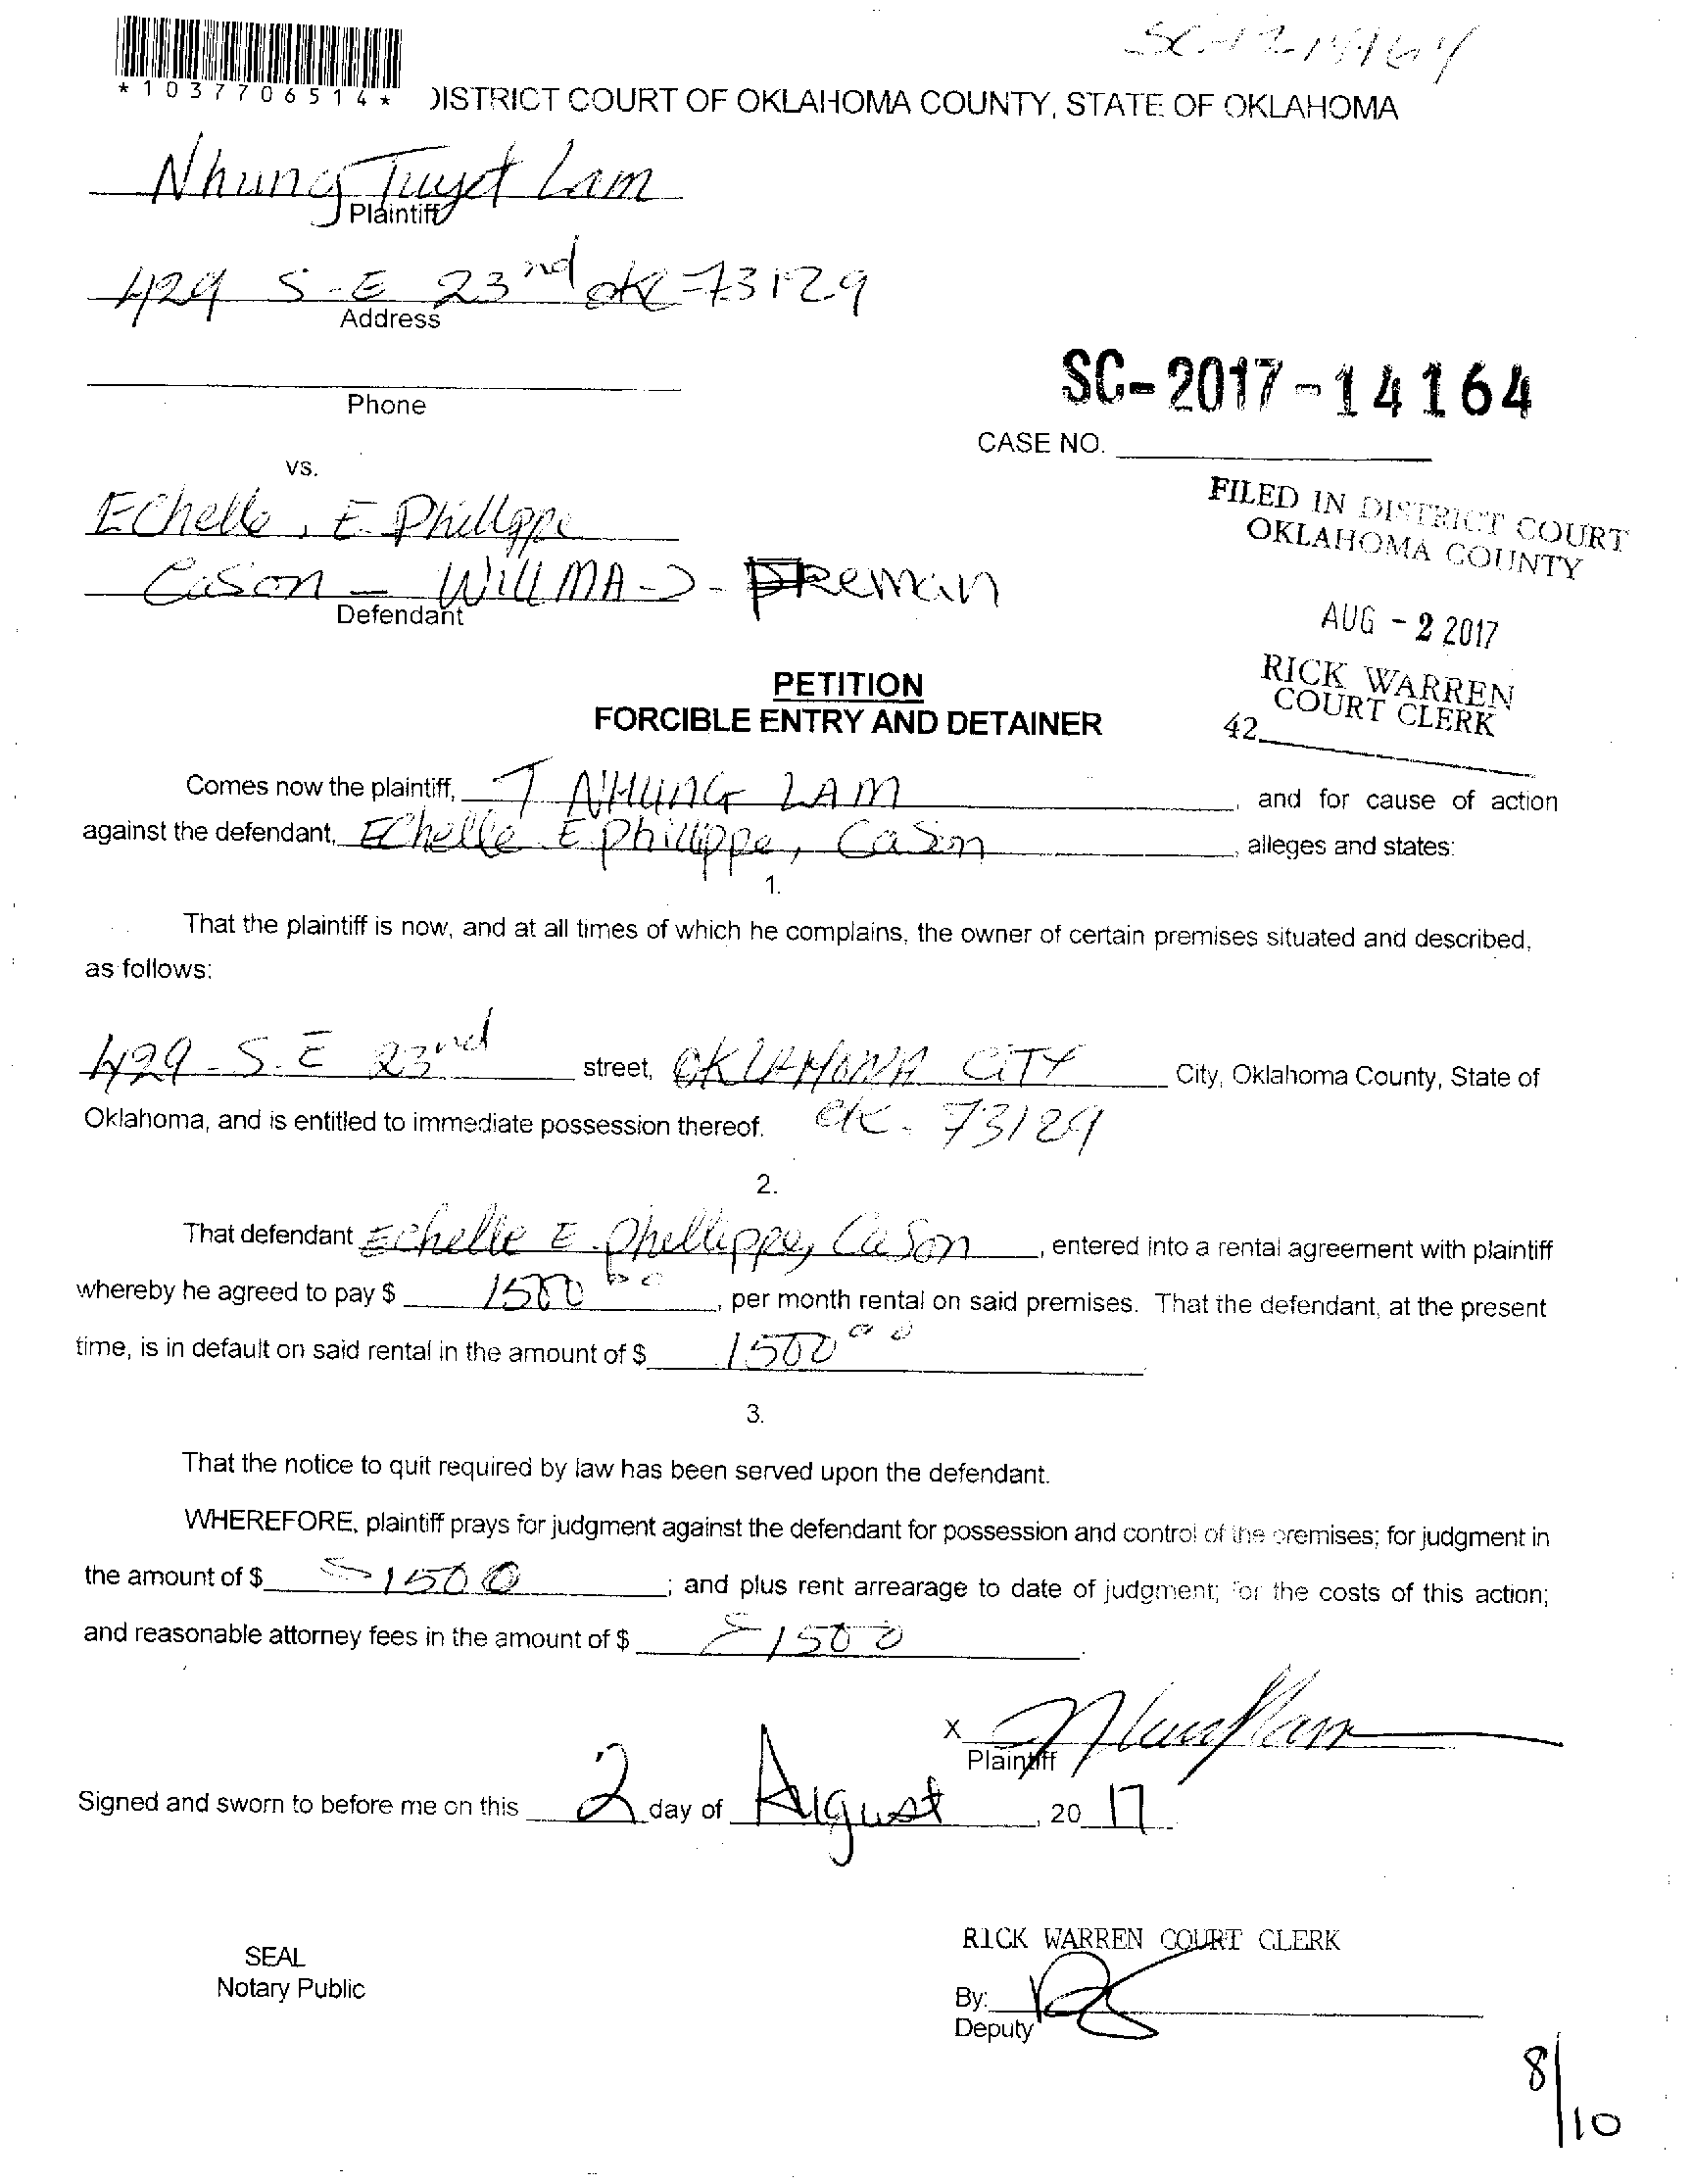 SC-17-14164
*1037706514*
DISTRICT COURT OF OKLAHOMA COUNTY, STATE OF OKLAHOMA
Nhung Tuyet Lam
Plaintiff
429 S-E 23nd okc 73129
Address
Phone
SC-2017-14164
CASE NO.
vs.
Echelle, E Phillippe
Cason - WILLMA-J-Freeman
Defendant
FILED IN DISTRICT COURT
OKLAHOMA COUNTY
AUG - 2 2017
RICK WARREN
COURT CLERK
42
PETITION
FORCIBLE ENTRY AND DETAINER
Comes now the plaintiff, T NHUNG LAM, and for cause of action
against the defendant, Echelle E. phillippe, Cason, alleges and states:
1.
That the plaintiff is now, and at all times of which he complains, the owner of certain premises situated and described,
as follows:
429-S.E 23nd street, OKLAHOMA CITY City, Oklahoma County, State of
Oklahoma, and is entitled to immediate possession thereof. 73129
2.
That defendant Echelle E. phellippe, Cason, entered into a rental agreement with plaintiff
whereby he agreed to pay $ 1500 00, per month rental on said premises. That the defendant, at the present
time, is in default on said rental in the amount of $ 1500 00
3.
That the notice to quit required by law has been served upon the defendant.
WHEREFORE, plaintiff prays for judgment against the defendant for possession and control of the premises; for judgment in
the amount of $ 1500; and plus rent arrearage to date of judgment; for the costs of this action;
and reasonable attorney fees in the amount of $ 1500
X
Plaintiff
Signed and sworn to before me on this 2 day of August, 20 17
SEAL
Notary Public
RICK WARREN COURT CLERK
By:
Deputy
8/10